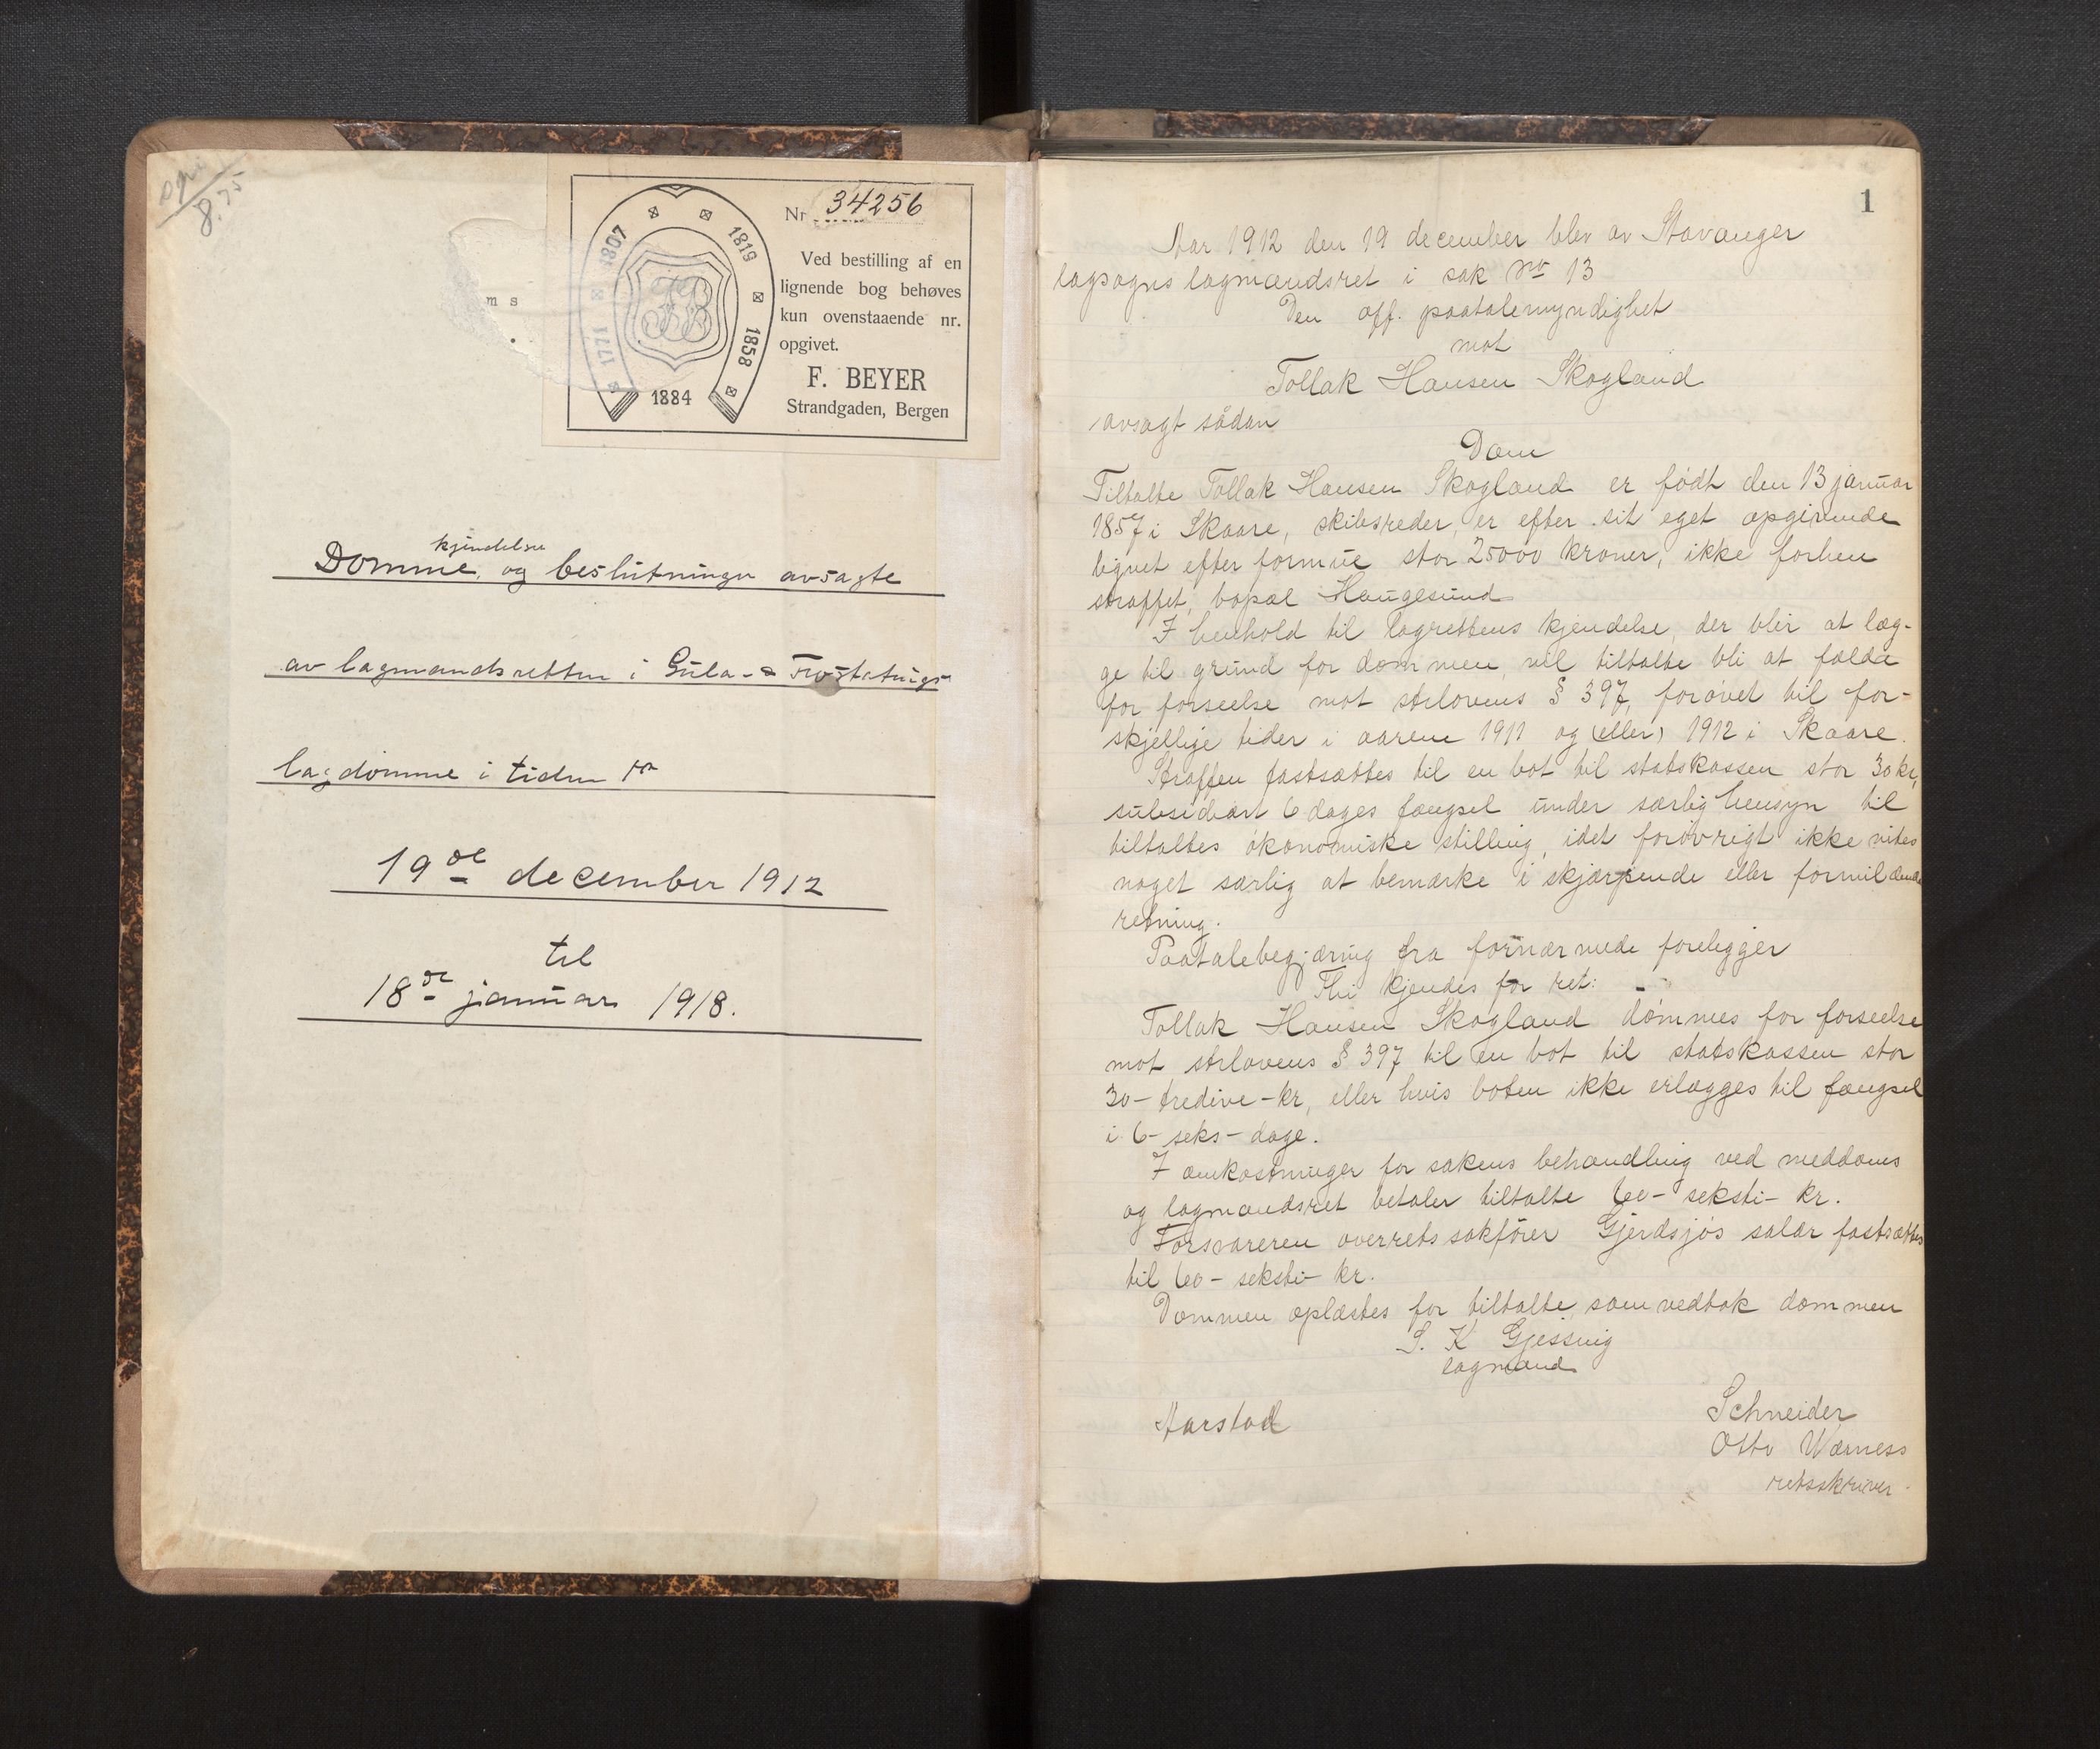 8.75
Nr 34256
Ved bestilling af en
lignende bog behøves
kun ovenstaaende nr.
opgivet.
F. BEYER
Strandgaden, Bergen
1771 1807 1819 1858
1884
FB
m s
kjendelser
Domme, og beslutninger avsagte
av lagmandsretten i Gula- & Frostatings
lagdømme i tiden fra
19de december 1912
til
18de januar 1918.
1
Aar 1912 den 19 december blev av Stavanger
lagsogns lagmandsret i sak No 13
Den off. paatalemyndighet
mot
Tollak Hansen Skogland
avsagt sådan
Dom
Tiltalte Tollak Hansen Skogland er født den 13 januar
1857 i Skaare, skibsreder, er efter sit eget opgivende
lignet efter formue stor 25000 kroner, ikke forhen
straffet, bopæl Haugesund
I henhold til lagrettens kjendelse, der blir at læg-
ge til grund for dommen, vil tiltalte bli at fælde
for forseelse mot strlovens § 397, forøvet til for-
skjellige tider i aarene 1911 og (eller) 1912 i Skaare.
Straffen fastsættes til en bot til statskassen stor 30 kr,
subsidiært 6 dages fængsel under særlig hensyn til
tiltaltes økonomiske stilling, idet forøvrigt ikke vites
noget særlig at bemærke i skjærpende eller formildende
retning.
Paatalebegjæring fra fornærmede forelegger
Thi kjendes for ret:
Tollak Hansen Skogland dømmes for forseelse
mot strlovens § 397 til en bot til statskassen stor
30 - tredive - kr, eller hvis boten ikke erlægges til fængsel
i 6 - seks - dage.
I omkostninger for sakens behandling ved meddoms
og lagmandsret betaler tiltalte 60 - seksti - kr.
Forsvareren overretssakfører Gjerdsjøs salær fastsættes
til 60 - seksti - kr.
Dommen oplæstes for tiltalte, som vedtok dommen
S. K Gjessing
lagmand
Aarstad
Schneider
Otto Wærness
retsskriver